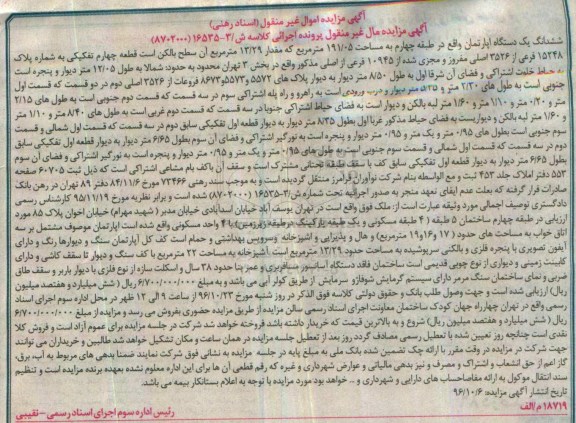 آگهی مزایده اموال غیر منقول (اسناد رهنی)
آگهی مزایده مال غیر منقول پرونده اجرائی کلاسه ش/۳-۱۶۵۳۵ (۸۷۰۲۰۰۰)
ششدانگ یک دستگاه آپارتمان واقع در طبقه چهارم به مساحت ۱۹۱/۰۵ مترمربع که مقدار ۱۳/۲۹ مترمربع آن سطح بالکن است قطعه چهارم تفکیکی به شماره پلاک
۱۵۲۴۸ فرعی از ۳۵۲۶ اصلی مفروز و مجزی شده از ۱۰۹۴۵ فرعی از اصلی مذکور واقع در بخش ۳ تهران محدود به حدود: شمالا به طول ۱۲/۰۵ متر دیوار و پنجره است
به حیاط خلوت اشتراکی و فضای آن شرقا اول به طول ۸/۵۰ متر دیوار به دیوار پلاک های ۵۵۷۲ و۵۵۷۳و۸۶۷۳ فروعات از ۳۵۲۶ اصلی دوم در دو قسمت که قسمت اول
جنوبی است به طول های ۲/۳۰ متر و متر دیوار و درب ورودی است به راهرو و راه پله اشتراکی سوم در سه قسمت که قسمت دوم جنوبی است به طول های ۲/۱۵
متر و ۰/۲۰ متر و ۱/۱۰ متر و ۱/۶۰ متر لبه بالکن و دیوار است به فضای حیاط اشتراکی جنوبا در سه قسمت که قسمت دوم غربی است به طول های ۸/۴۰ متر و ۱/۱۰ متر
و ۱/۶۰ متر لبه بالکن و دیواریست به فضای حیاط مذکور غربا اول بطول ۸/۳۵ متر دیوار به دیوار قطعه اول تفکیکی سابق دوم در سه قسمت که قسمت اول شمالی و قسمت
سوم جنوبی است بطول های ۰/۹۵ متر و یک متر و ۰/۹۵ متر دیوار و پنجره است به نورگیر اشتراکی و فضای آن سوم بطول ۶/۶۵ متر دیوار به دیوار قطعه اول تفکیکی سابق
دوم در سه قسمت که قسمت اول شمالی و قسمت سوم جنوبی است به طول های ۰/۹۵ متر و یک متر و ۰/۹۵ متر دیوار و پنجره است به نورگیر اشتراکی و فضای آن سوم
بطول ۶/۶۵ متر دیوار به دیوار قطعه اول تفکیکی سابق کف با سقف طبقه تحتانی مشترک است و سقف آن باکف بام مشاعی اشتراکی است که ذیل ثبت ۶۰۷۰۵ صفحه
۵۵۳ دفتر املاک جلد ۴۵۳ ثبت و مع الواسطه بنام شرکت نوآوران فرآمرز منتقل گردیده است و به موجب سند رهنی ۷۳۴۶۶ مورخ ۸۴/۱۱/۶ دفتر ۸۹ تهران در رهن بانک
صادرات قرار گرفته که بعلت عدم ایفای تعهد منجر به صدور اجرائیه تحت شماره ش/۳-۱۶۵۳۵ (۸۷۰۲۰۰۰) شده است و برابر نظریه مورخ ۹۵/۱۱/۱۹ کارشناس رسمی
دادگستری توصیف اجمالی مورد وثیقه عبارت است از: ملک فوق واقع است در تهران یوسف آباد خیابان اسدآبادی خیابان مدبر (شهید مهرام) خیابان اخوان پلاک ۸۵ مورد
ارزیابی در طبقه چهارم ساختمان ۵ طبقه ( ۴ طبقه مسکونی و یک طبقه پارکینگ درطبقه زیرزمین) با ۴ واحد مسکونی واقع شده است آپارتمان موصوف مشتمل بر سه
اتاق خواب به مساحت های حدود ( ۱۷ و۱۶و۱۹ مترمربع) و هال و پذیرایی و آشپزخانه وسرویس بهداشتی و حمام است کف کل آپارتمان سنگ و دیوارها رنگ و دارای
آیفون تصویری با پنجره فلزی و بالکنی سرپوشیده به مساحت حدود ۱۳/۲۹ مترمربع است آشپزخانه به مساحت ۲۲ مترمربع با کف سنگ و دیوار تا سقف کاشی و دارای
کابینت زمینی و دیواری از نوع چوبی قدیمی است ساختمان فاقد دستگاه آسانسور مسافربری و عمر بنا حدود ۳۸ سال و اسکلت سازه از نوع فلزی با دیوار باربر و سقف طاق
ضربی و نمای ساختمان سنگ مرمر دارای سیستم گرمایش شوفاژو سرمایش از طریق کولر آبی می باشد و به مبلغ ۶/۷۰۰/۰۰۰/۰۰۰ ریال ( شش میلیارد و هفتصد میلیون
ریال) ارزیابی شده است و جهت وصول طلب بانک و حقوق دولتی کلاسه فوق الذکر در روز شنبه مورخ ۹۶/۱۰/۲۳ از ساعت ۹ الی ۱۲ ظهر در محل اداره سوم اجرای اسناد
رسمی واقع در تهران چهارراه جهان کودک ساختمان معاونت اجرای اسناد رسمی سالن مزایده از طریق مزایده حضوری بفروش می رسد و مزایده از مبلغ ۶/۷۰۰/۰۰۰/۰۰۰
ریال (شش میلیارد و هفتصد میلیون ریال) شروع و به بالاترین قیمت که خریدار داشته باشد فروخته خواهد شد شرکت در جلسه مزایده برای عموم آزاد است و فروش کلا
نقدی است چنانچه روز تعیین شده با تعطیل رسمی مصادف گردد روز بعد از تعطیل جلسه مزایده در همان ساعت و مکان تشکیل خواهد شد طالبین و خریداران می توانند
جهت شرکت در مزایده در وقت مقرر با ارائه چک تضمین شده بانک ملی به مبلغ پایه در جلسه مزایده به نشانی فوق شرکت نمایند ضمنا بدهی های مربوط به آب، برق،
گاز اعم از حق انشعاب و اشتراک و مصرف و نیز بدهی مالیاتی و عوارض شهرداری و غیره که رقم قطعی آن ها برای این اداره معلوم نشده بعهده برنده مزایده است و تنظیم
سند انتقال موکول به ارائه مفاصاحساب های دارایی و شهرداری و .. خواهد بود مورد مزایده با توجه به اعلام بستانکار بیمه می باشد.
تاریخ انتشار آگهی مزایده: ۹۶/۱۰/۶
۱۸۷۱۹/م الف
رئیس اداره سوم اجرای اسناد رسمی - نقیبی